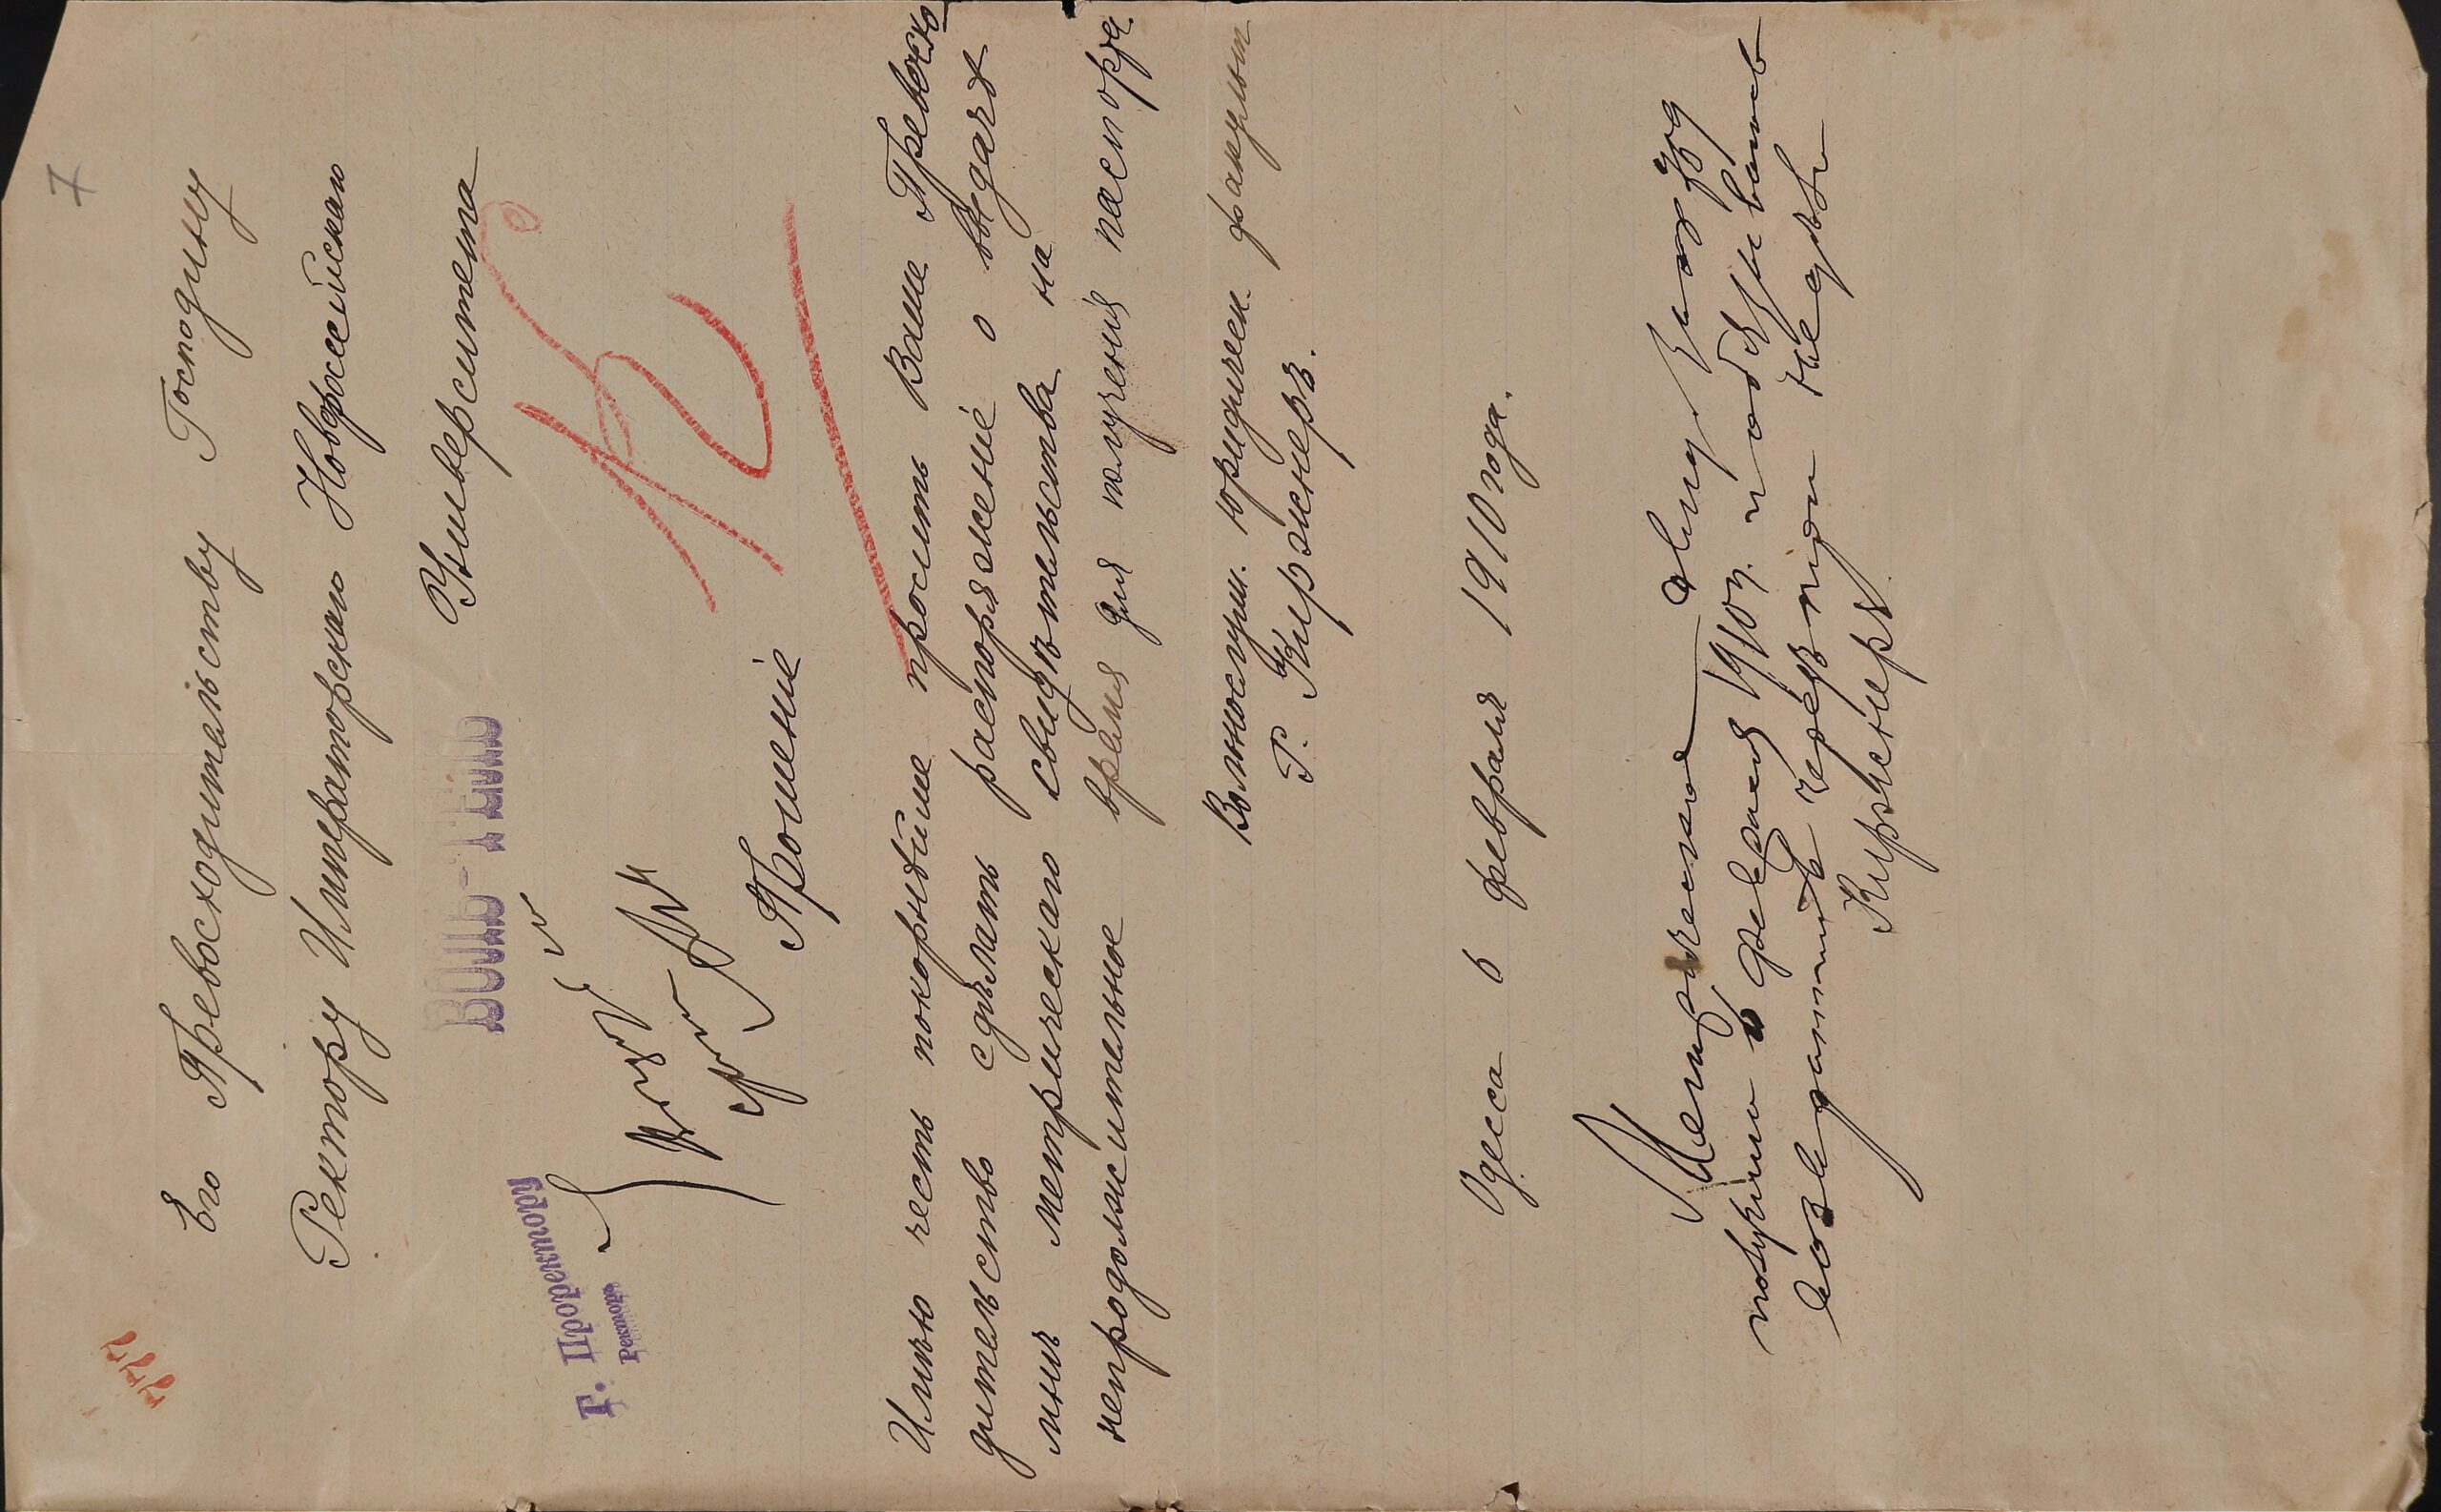 7
Его Превосходительству Господину
Ректору Императорскаго Новороссійскаго
Университета
ВОЛЬН-ТЕЛЮ
Г. Проректору
Ректоръ
Прошеніе
Имѣю честь покорнѣйше просить Ваше Превосхо
дительство сдѣлать распоряженіе о выдачѣ
мнѣ метрическаго свидѣтельства на
непродолжительное время для полученія паспорта
Вольнослуш. юридическ. факульт
Р. Киржнеръ.
Одесса 6 февраля 1910 года.
Метрическое
получилъ 6 февраля 1910 г. и обязываюсь
возвратить черезъ недѣлю
Киржнеръ